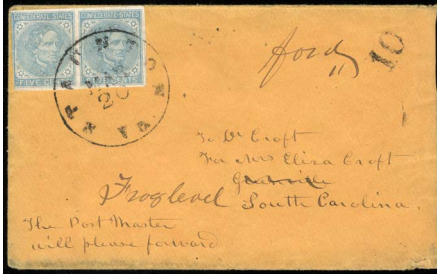 CONFEDERATE STATES CONFEDERATE STATES
FIVE CENTS
STAUNTON VA.
MAR
20
ford
10
To Dr Croft
For Mrs Eliza Croft
Greenville
Froglevel South Carolina.
The Post Master
will please forward